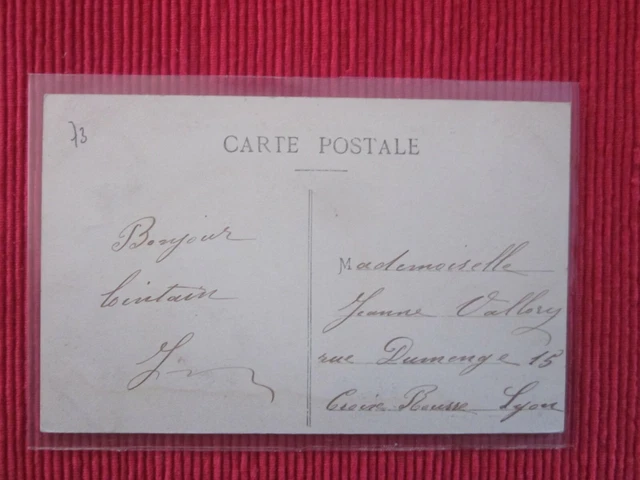 73
CARTE POSTALE
Bonjour
lointain
Mademoiselle
Jeanne Vallory
rue Dumenge 15
Croix Rousse Lyon